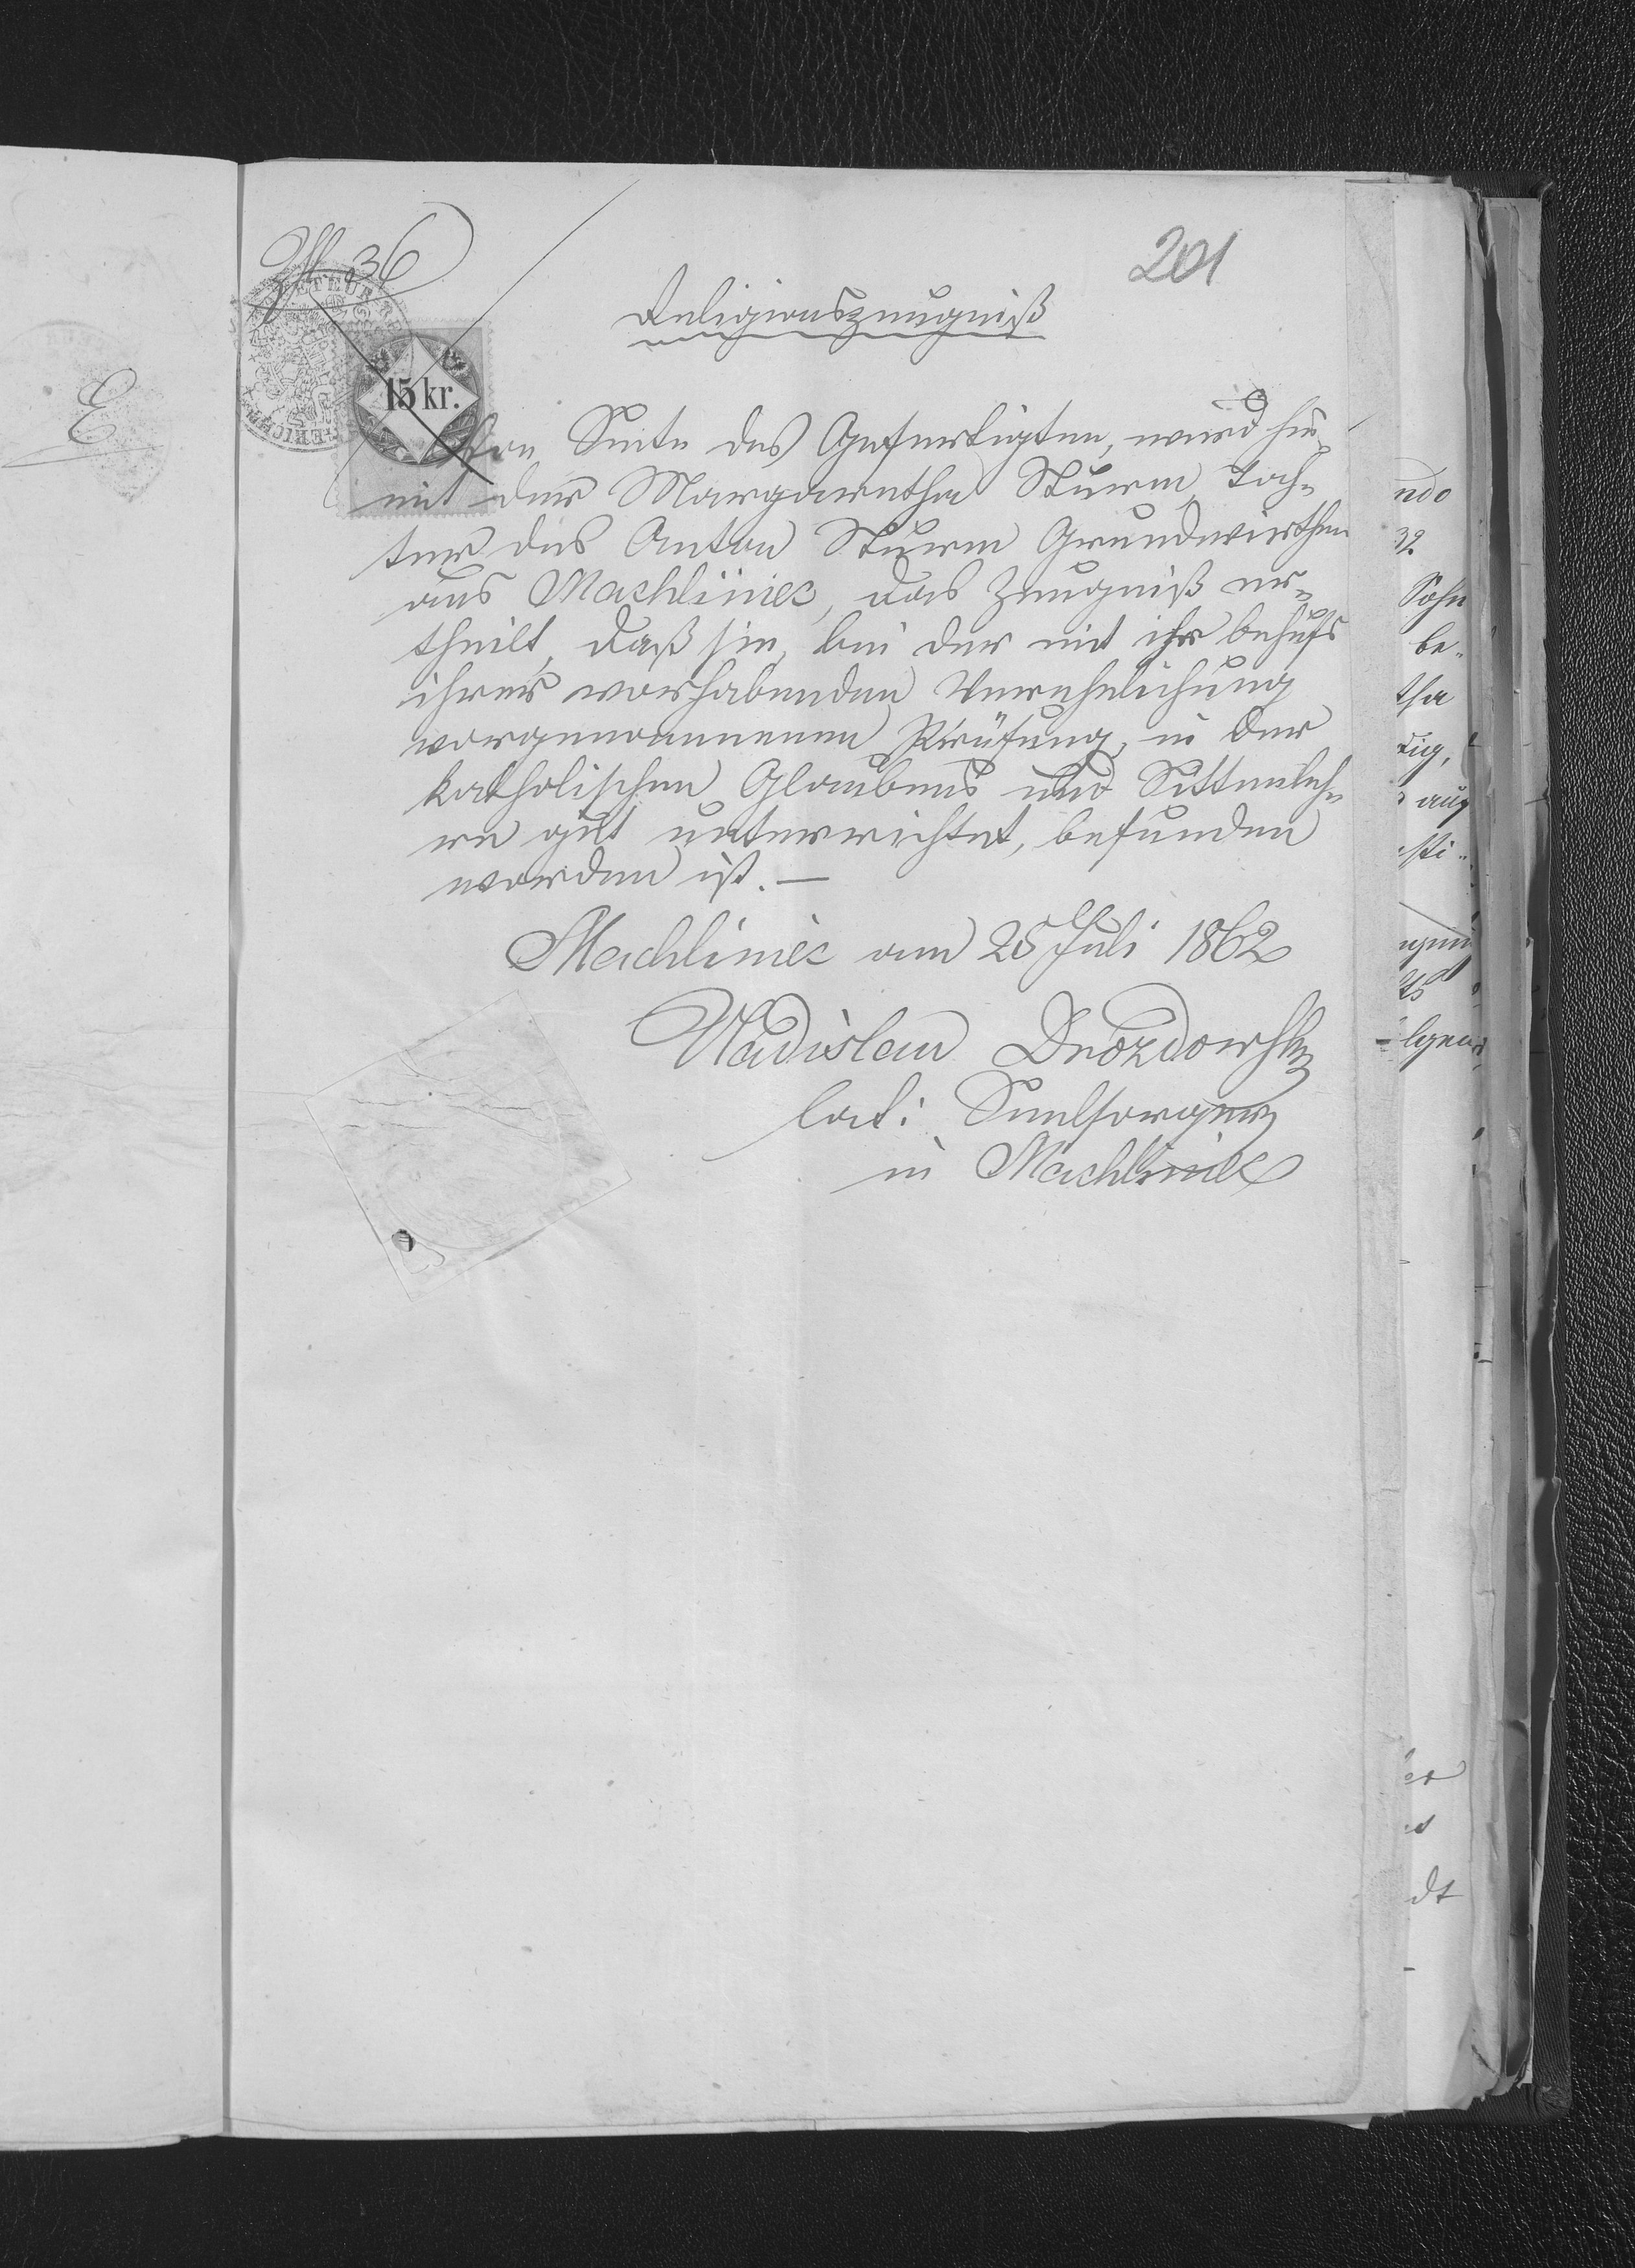 36
201
Religionszeugniß
15 kr.
Von Seite des Gefertigten, wird hie-
mit der Margaretha Sturm, Toch-
ter des Anton Sturm Grundwirthen
aus Machliniec, das Zeugniß er-
theilt, daß sie, bei der mit ihr behufs
ihrer vorhabenden Verehelichung
vorgenommenen Prüfung, in der
katholischen Glaubens und Sittenleh-
re gut unterrichtet, befunden
worden ist. —
Machliniec am 25 Juli 1862
Wladislaw Drozdowski
lat: Seelsorger
in Machliniec
E